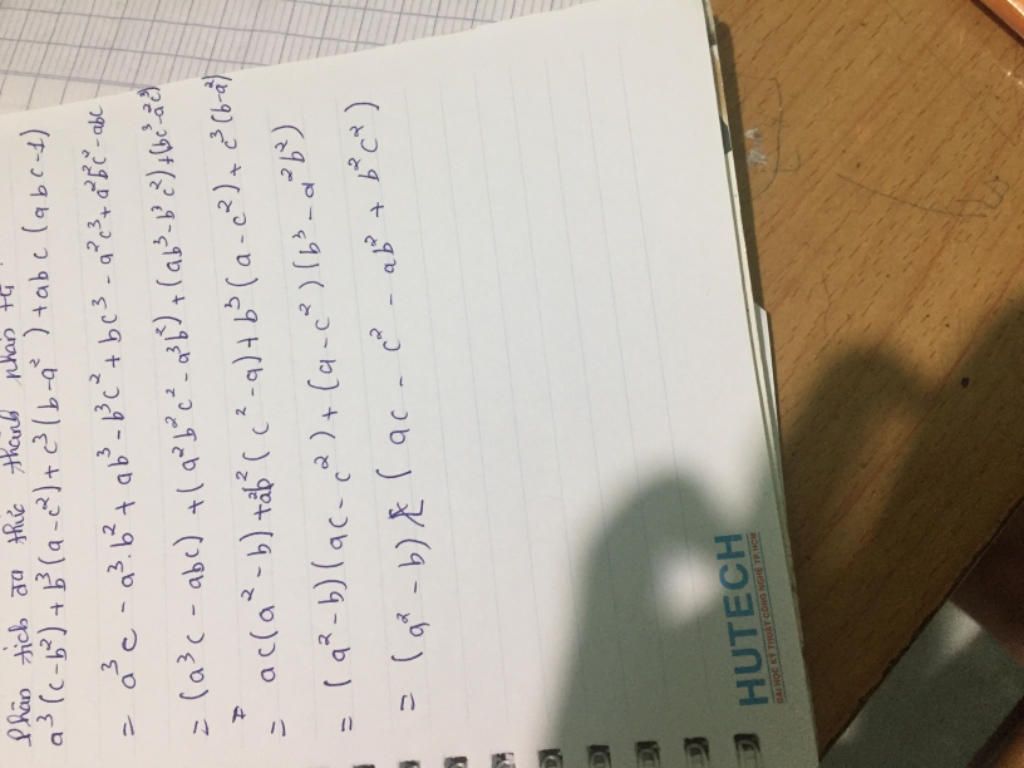 Phân tích đa thức thành nhân tử
a³(c-b²)+b³(a-c²)+c³(b-a²)+abc(abc-1)
= a³c - a³.b² + ab³ - b³c² + bc³ - a²c³ + a²b²c² - abc
= (a³c - abc) + (a²b²c² - a³b²) + (ab³ - b³c²) + (bc³ - a²c³)
= ac(a² - b) + a²b²(c² - a) + b³(a - c²) + c³(b - a²)
= (a² - b)(ac - c²) + (a - c²)(b³ - a²b²)
= (a² - b)(ac - c² - ab² + b²c²)
HUTECH
ĐẠI HỌC KỸ THUẬT CÔNG NGHỆ TP.HCM